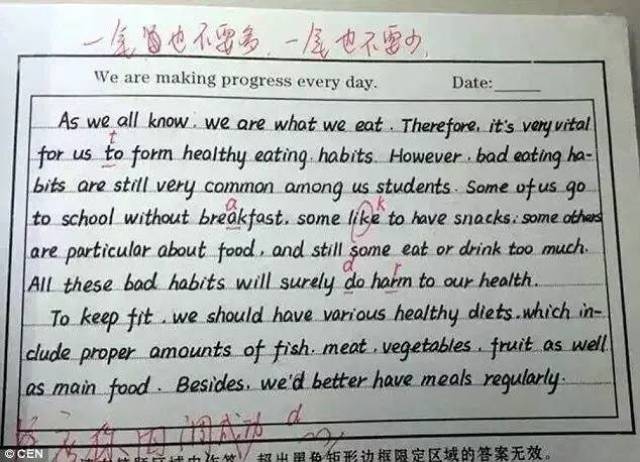 一尾 也不要多、一尾也不要少
We are making progress every day. Date:
As we all know, we are what we eat. Therefore, it's very vital
t
for us to form healthy eating habits. However, bad eating ha-
bits are still very common among us students. Some of us go
a k
to school without breakfast, some like to have snacks; some others
are particular about food, and still some eat or drink too much.
d r
All these bad habits will surely do harm to our health.
To keep fit, we should have various healthy diets, which in-
clude proper amounts of fish, meat, vegetables, fruit as well
as main food. Besides, we'd better have meals regularly.
d
© CEN
超出黑色矩形边框限定区域的答案无效。